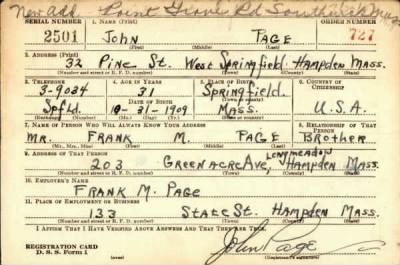 New add. Point Grove Rd Southwick Mass
SERIAL NUMBER 1. NAME (Print) ORDER NUMBER
2501 JOHN PAGE 727
(First) (Middle) (Last)
2. ADDRESS (Print)
32 Pine St. West Springfield Hampden Mass.
(Number and street or R. F. D. number) (Town) (County) (State)
3. TELEPHONE 4. AGE IN YEARS 5. PLACE OF BIRTH 6. COUNTRY OF CITIZENSHIP
3-9034 31 Springfield.
Spfld. DATE OF BIRTH Mass. U.S.A.
10-31-1909
(Exchange) (Number) (Mo.) (Day) (Yr.) (Town or county) (State or country)
7. NAME OF PERSON WHO WILL ALWAYS KNOW YOUR ADDRESS 8. RELATIONSHIP OF THAT PERSON
MR. FRANK M. PAGE Brother
(Mr., Mrs., Miss) (First) (Middle) (Last)
9. ADDRESS OF THAT PERSON
203 Greenacre Ave, Longmeadow Hampden Mass.
(Number and street or R. F. D. number) (Town) (County) (State)
10. EMPLOYER'S NAME
FRANK M. PAGE
11. PLACE OF EMPLOYMENT OR BUSINESS
133 State St. Hampden Mass.
(Number and street or R. F. D. number) (Town) (County) (State)
I AFFIRM THAT I HAVE VERIFIED ABOVE ANSWERS AND THAT THEY ARE TRUE.
REGISTRATION CARD
D. S. S. Form 1
John Page
(Registrant's signature)